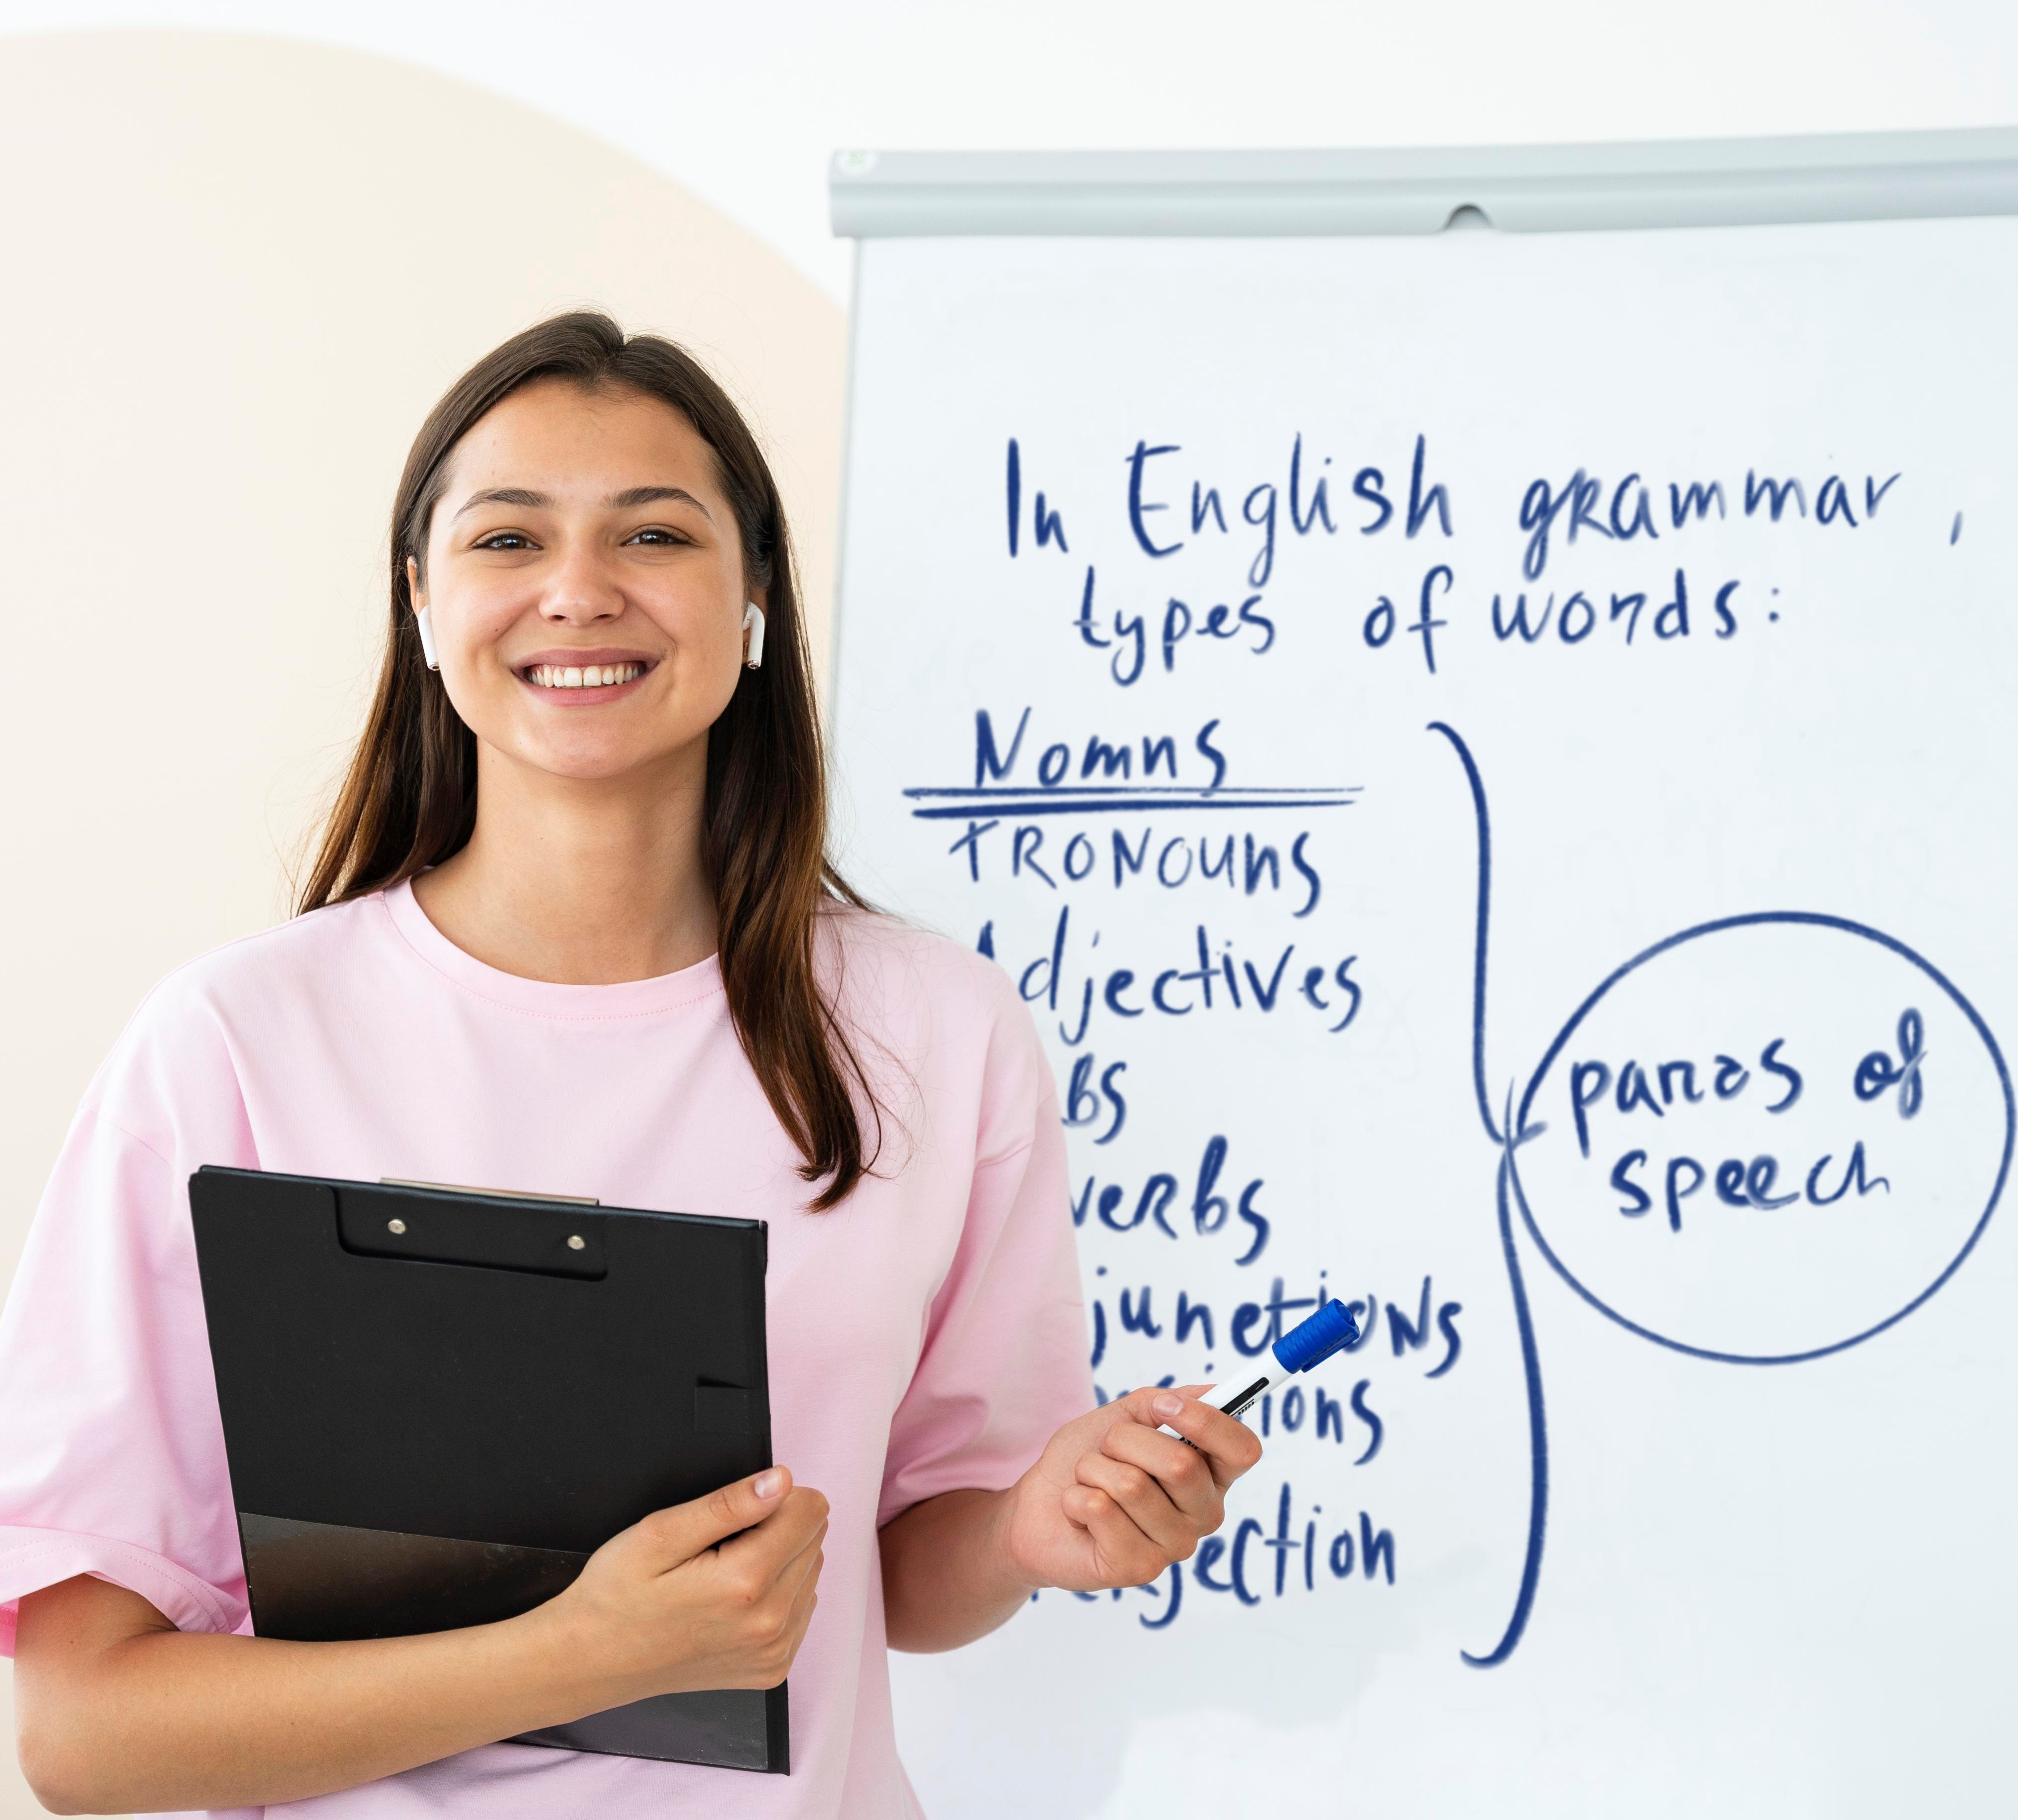 In English grammar,
types of words:
Nomns
PRONOUNS
Adjectives
bs
verbs
junctions
ions
jection
parts of
speech